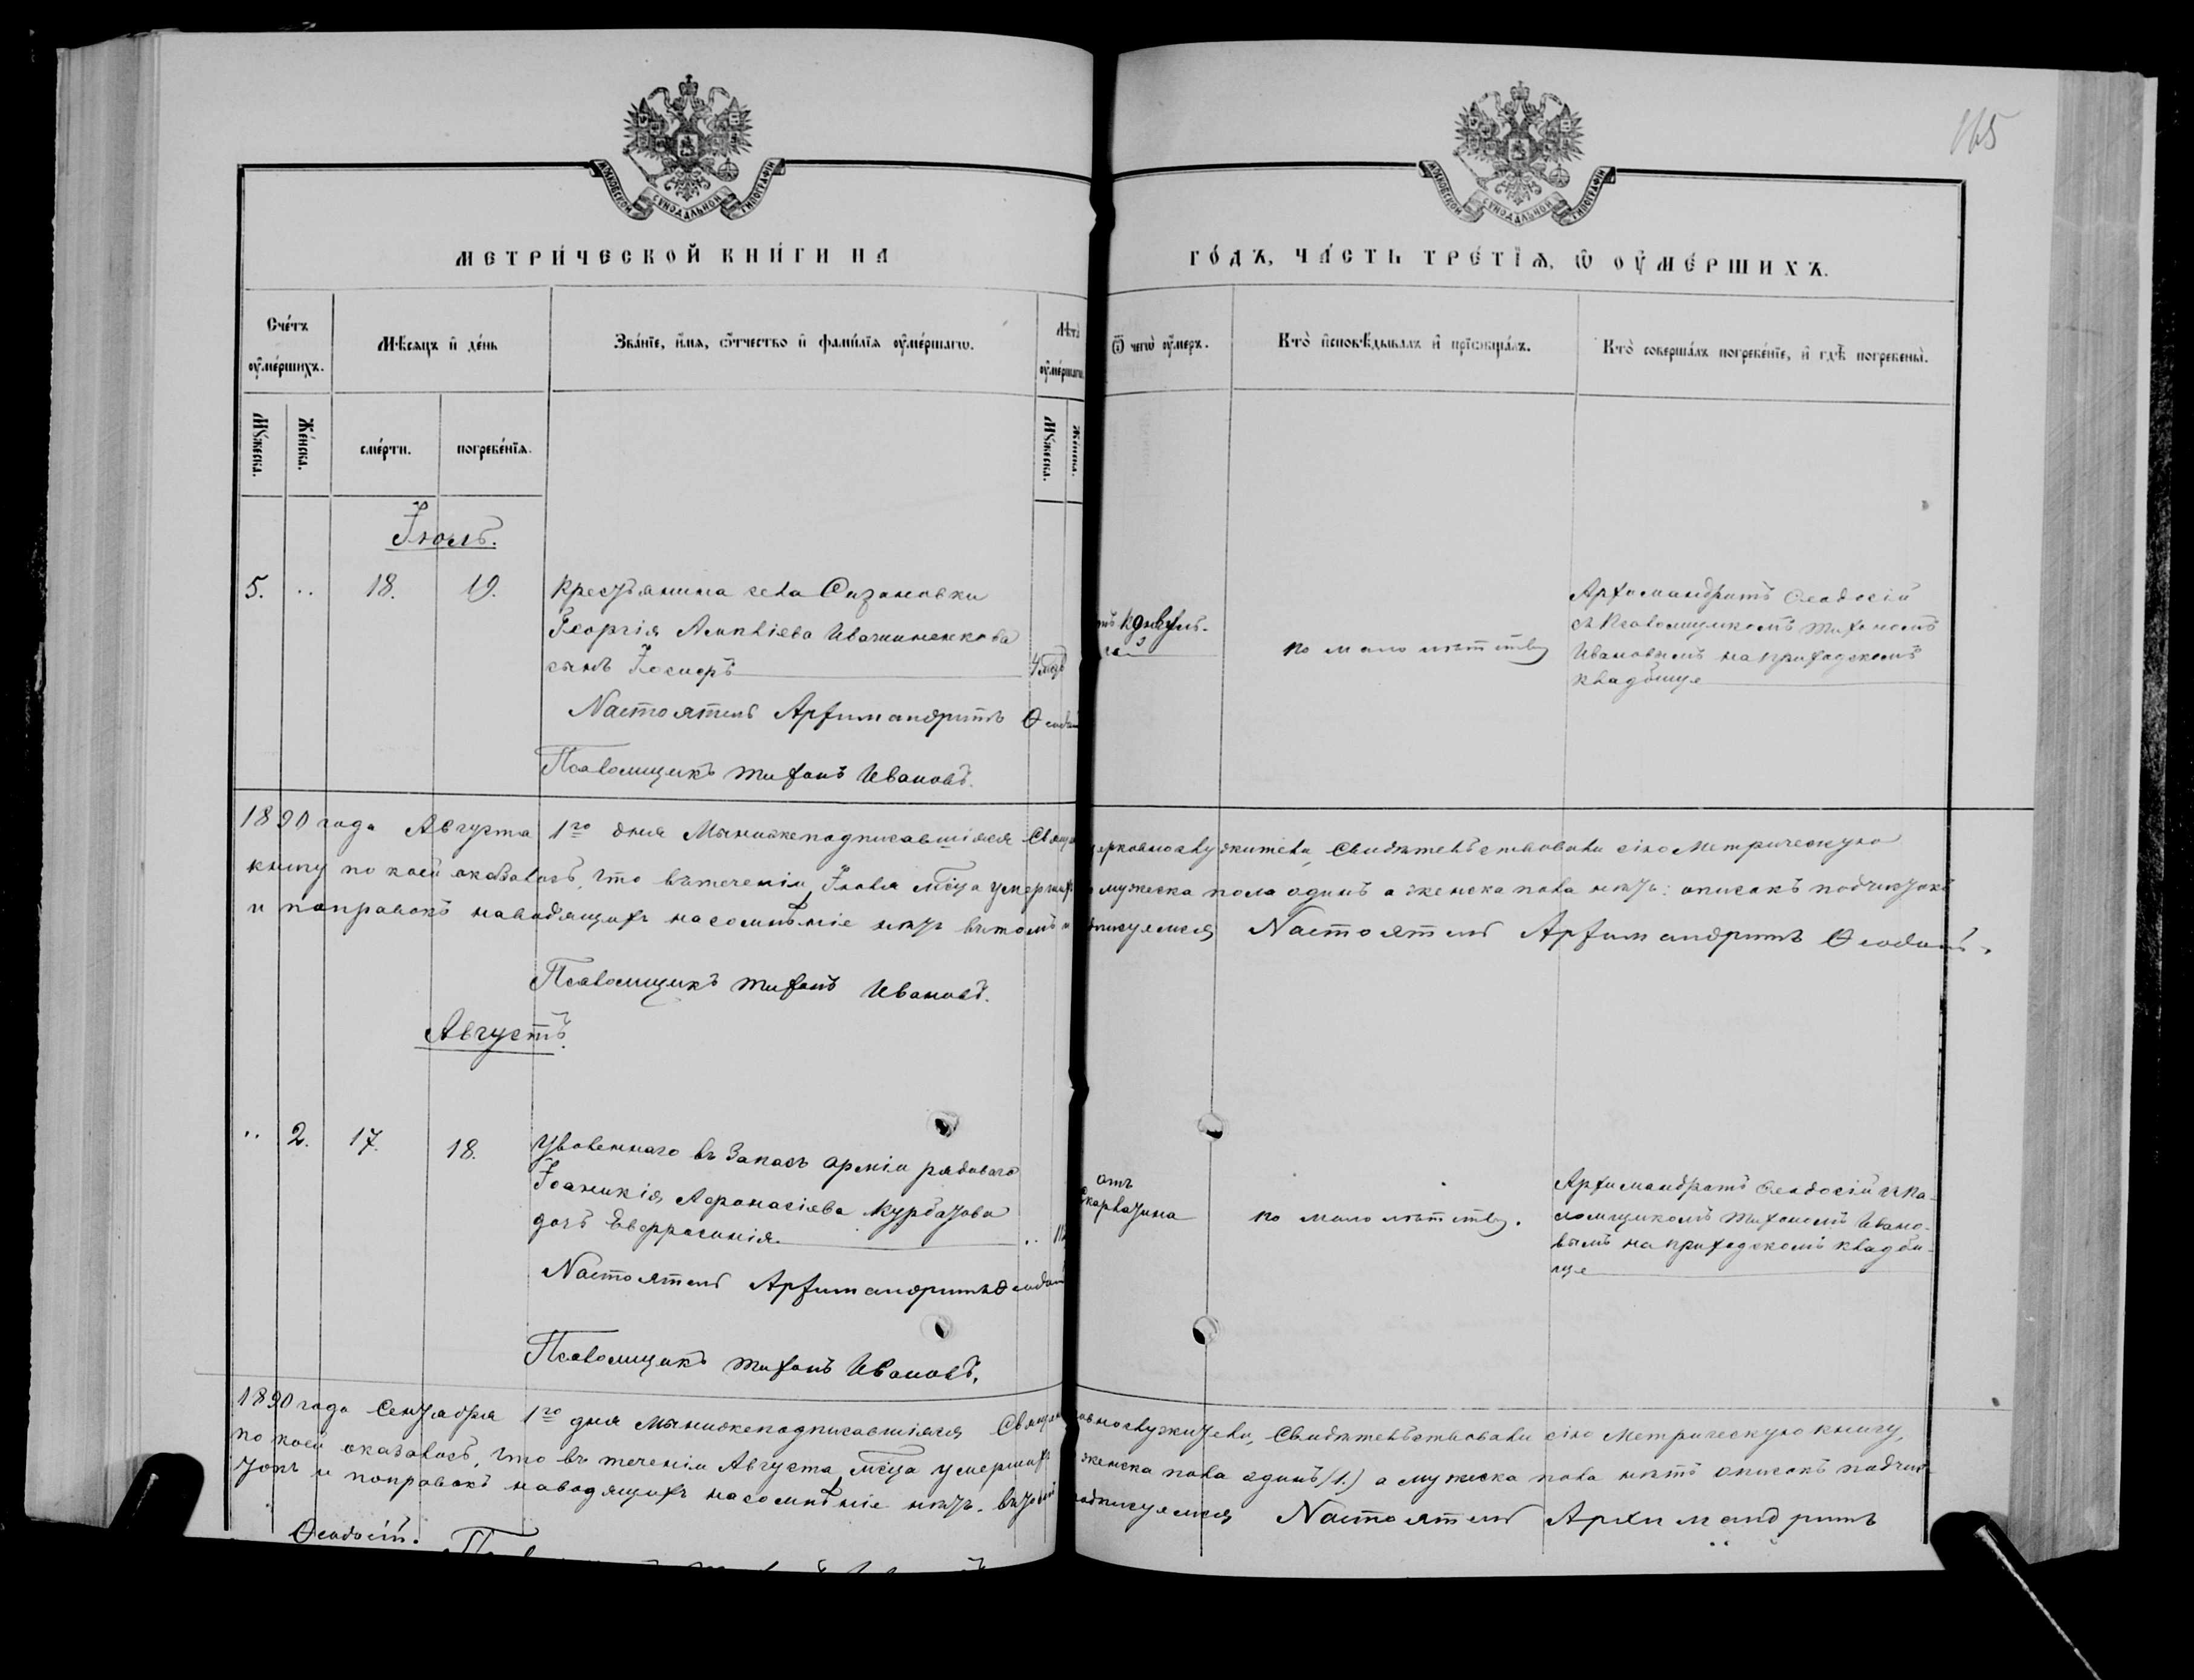 165
МОСКОВСКОЙ СѴНОДАЛЬНОЙ ТИПОГРАФІИ
МОСКОВСКОЙ СѴНОДАЛЬНОЙ ТИПОГРАФІИ
МЕТРИ́ЧЕСКОЙ КНИ́ГИ НА
ГО́ДЪ, ЧА́СТЬ ТРЕ́ТІѦ, Ѽ ОУ҆МЕ́РШИХЪ.
Сче́тъ оу҆ме́ршихъ.
Мѣ́сяцъ и҆ де́нь
Зва́нїе, и҆́мя, ѻ҆́тчество и҆ фами́лїя оу҆ме́ршагѡ.
Лѣта̀ оу҆ме́ршагѡ
Ѿ чегѡ̀ оу҆́меръ.
Кто̀ и҆сповѣ́дывалъ и҆ прїѡбща́лъ.
Кто̀ соверша́лъ погребе́нїе, и҆ гдѣ̀ погребены̀.
Му́жеска.
Же́нска.
сме́рти.
погребе́нїя.
Му́жеска.
Же́нска.
Іюль.
5. .. 18. 19.
Крестьянина села Сазановки
Георгія Алипіева Ивашиненкова
сынъ Іосифъ
Настоятель Архимандритъ Ѳеодосій
Псаломщикъ Тихонъ Ивановъ.
по малолѣтству
Архимандритъ Ѳеодосій
съ Псаломщикомъ Тихономъ
Ивановымъ на приходскомъ
кладбище
1890 года Августа 1го дня Мы нижеподписавшіяся Свящ церковнослужители, Свидѣтельствовали сію Метрическую
книгу по коей оказалось, что въ теченіи Іюля мѣсца умерших мужеска пола одинъ а женска пола нѣтъ: описокъ подчистокъ
и поправокъ наводящихъ на сомнѣніе нѣтъ въ томъ и подписуемся Настоятель Архимандритъ Ѳеодосій.
Псаломщикъ Тихонъ Ивановъ.
Августъ.
.. 2. 17. 18.
Уволеннаго въ Запасъ арміи рядоваго
Іоаникія Афонасіева Курбатова
дочь Евфросинія.
Настоятель Архимандритъ Ѳеодосій
Псаломщикъ Тихонъ Ивановъ.
отъ
Скарлатина
по малолѣтству.
Архимандритъ Ѳеодосій съ Пса-
ломщикомъ Тихономъ Ивано-
вымъ на приходскомъ кладби-
ще
1890 года Сентября 1го дня Мы нижеподписавшіяся Священно церковнослужители, Свидѣтельствовали сію Метрическую книгу,
по коей оказалось, что въ теченіи Августа мѣсца умерших женска пола одинъ (1.) а мужеска пола нѣтъ описокъ подчис-
токъ и поправокъ наводящихъ на сомнѣніе нѣтъ. въ томъ подписуемся Настоятель Архимандритъ
Ѳеодосій.